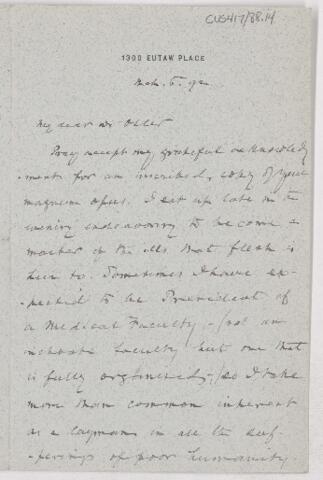 CUS417/88.14
1300 EUTAW PLACE
Mch. 5. 92
My dear Dr Osler
Pray accept my grateful acknowledg
-ments for an inscribed copy of your
magnum opus. I sat up late in the
evening endeavoring to become a
master of the ills that flesh is
heir to. Sometimes I have ex-
-pected to be President of
a Medical Faculty,-(not an
inchoate faculty but one that
is fully organized;-) so I take
more than common interest
as a layman in all the suf-
-ferings of poor humanity.